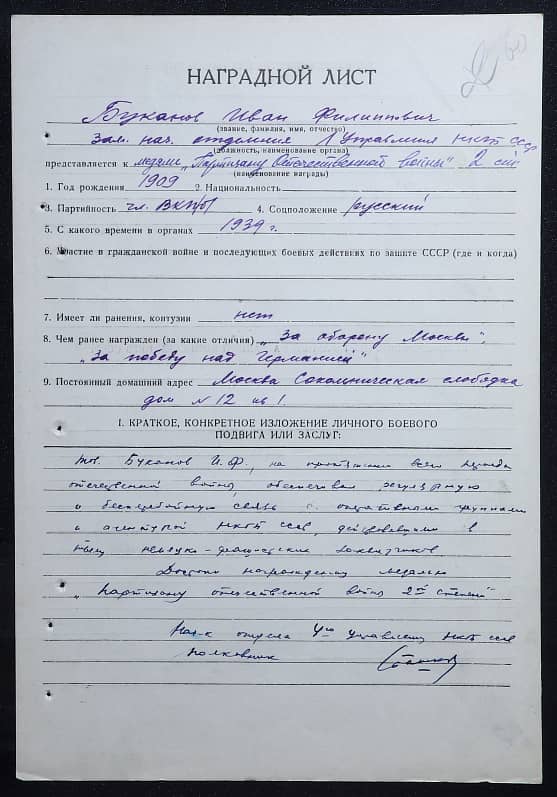 60
НАГРАДНОЙ ЛИСТ
Буканов Иван Филиппович
(звание, фамилия, имя, отчество)
Зам. нач. отделения 1 Управления НКГБ СССР
(должность, наименование органа)
представляется к медали „Партизану Отечественной войны" 2 степ
(наименование награды)
1. Год рождения 1909 2. Национальность
3. Партийность чл. ВКП/б/ 4. Соцположение русский
5. С какого времени в органах 1939 г.
6. Участие в гражданской войне и последующих боевых действиях по защите СССР (где и когда)
7. Имеет ли ранения, контузии нет
8. Чем ранее награжден (за какие отличия) „За оборону Москвы",
„За победу над Германией"
9. Постоянный домашний адрес Москва Сокольническая слободка
дом № 12 кв 1.
I. КРАТКОЕ, КОНКРЕТНОЕ ИЗЛОЖЕНИЕ ЛИЧНОГО БОЕВОГО
ПОДВИГА ИЛИ ЗАСЛУГ:
тов. Буканов И.Ф., на протяжении всего периода
отечественной войны, обеспечивал регулярную
и бесперебойную связь с оперативными группами
и агентурой НКГБ СССР, действовавшими в
тылу немецко-фашистских захватчиков
Достоин награждения медалью
„Партизану отечественной войны 2й степени"
Нач-к отдела 4го управления НКГБ СССР
полковник